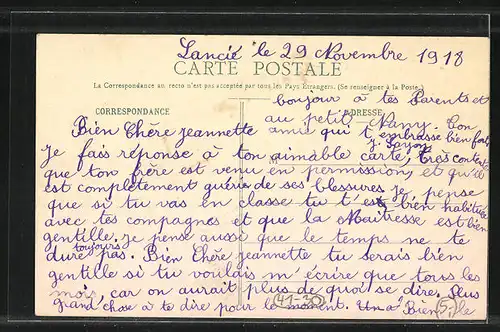 Lancié le 29 Novembre 1918
CARTE POSTALE
La Correspondance au recto n'est pas acceptée par tous les Pays Étrangers. (Se renseigner à la Poste.)
bonjour à tes Parents et
CORRESPONDANCE
ADRESSE
au petit Nany. Ton
Bien Chère jeannette
amie qui t'embrasse bien fort
je fais réponse à ton aimable carte, très contente
que ton frère est venu en permission, et qu'il
est complètement guérie de ses blessures je pense
que si tu vas en classe tu t'es bien habituée
avec tes compagnes et que la Maîtresse est bien
gentille. je pense aussi que le temps ne te
toujours
dure pas. Bien Chère jeannette tu serais bien
gentille si tu voulais m'écrire que tous les
mois, car on aurait plus de quoi se dire. Plus
grand chose à te dire pour le moment. Un Bien le
41-30
5.-